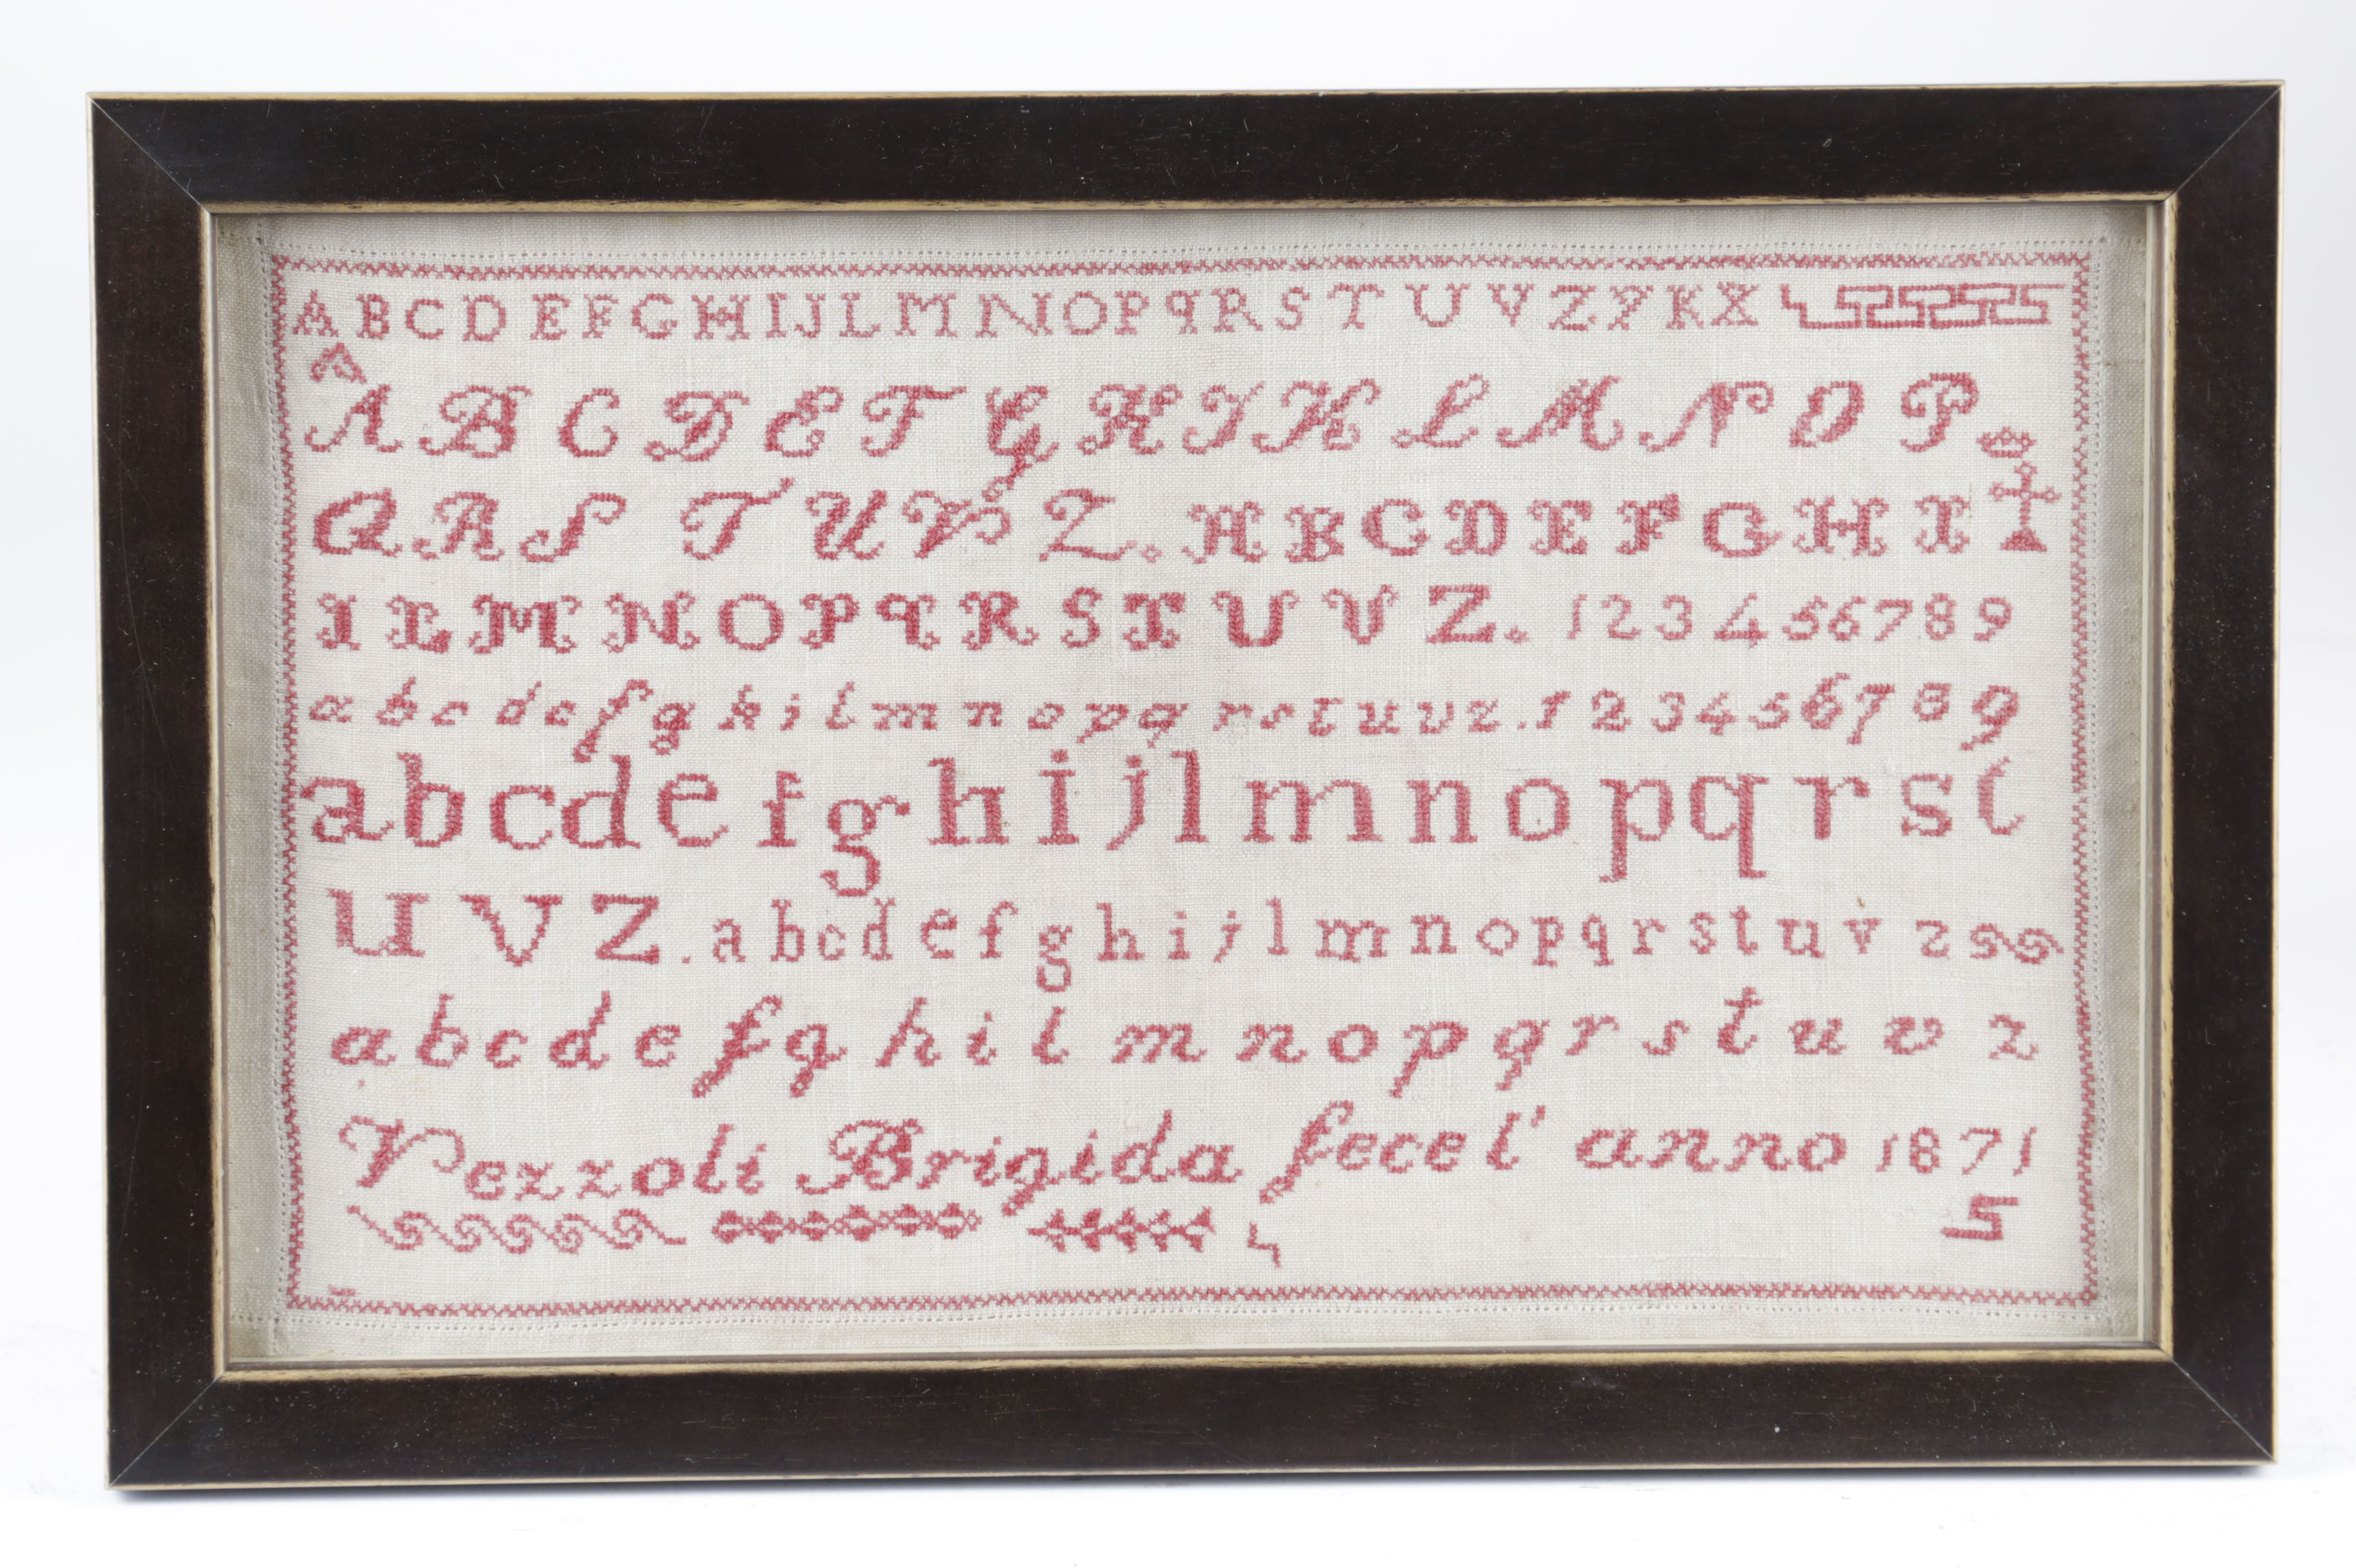 A B C D E F G H I J L M N O P q R S T U V Z Y K X
A B C D E F G H I K L M N O P
Q R S T U V Z. A B C D E F G H I
I L M N O P q R S T U V Z. 1 2 3 4 5 6 7 8 9
a b c d e f g h i l m n o p q r s t u v z. 1 2 3 4 5 6 7 8 9
a b c d e f g h i j l m n o p q r s t
u v z. a b c d e f g h i j l m n o p q r s t u v z
a b c d e f g h i l m n o p q r s t u v z
Vezzoli Brigida fece l' anno 1871